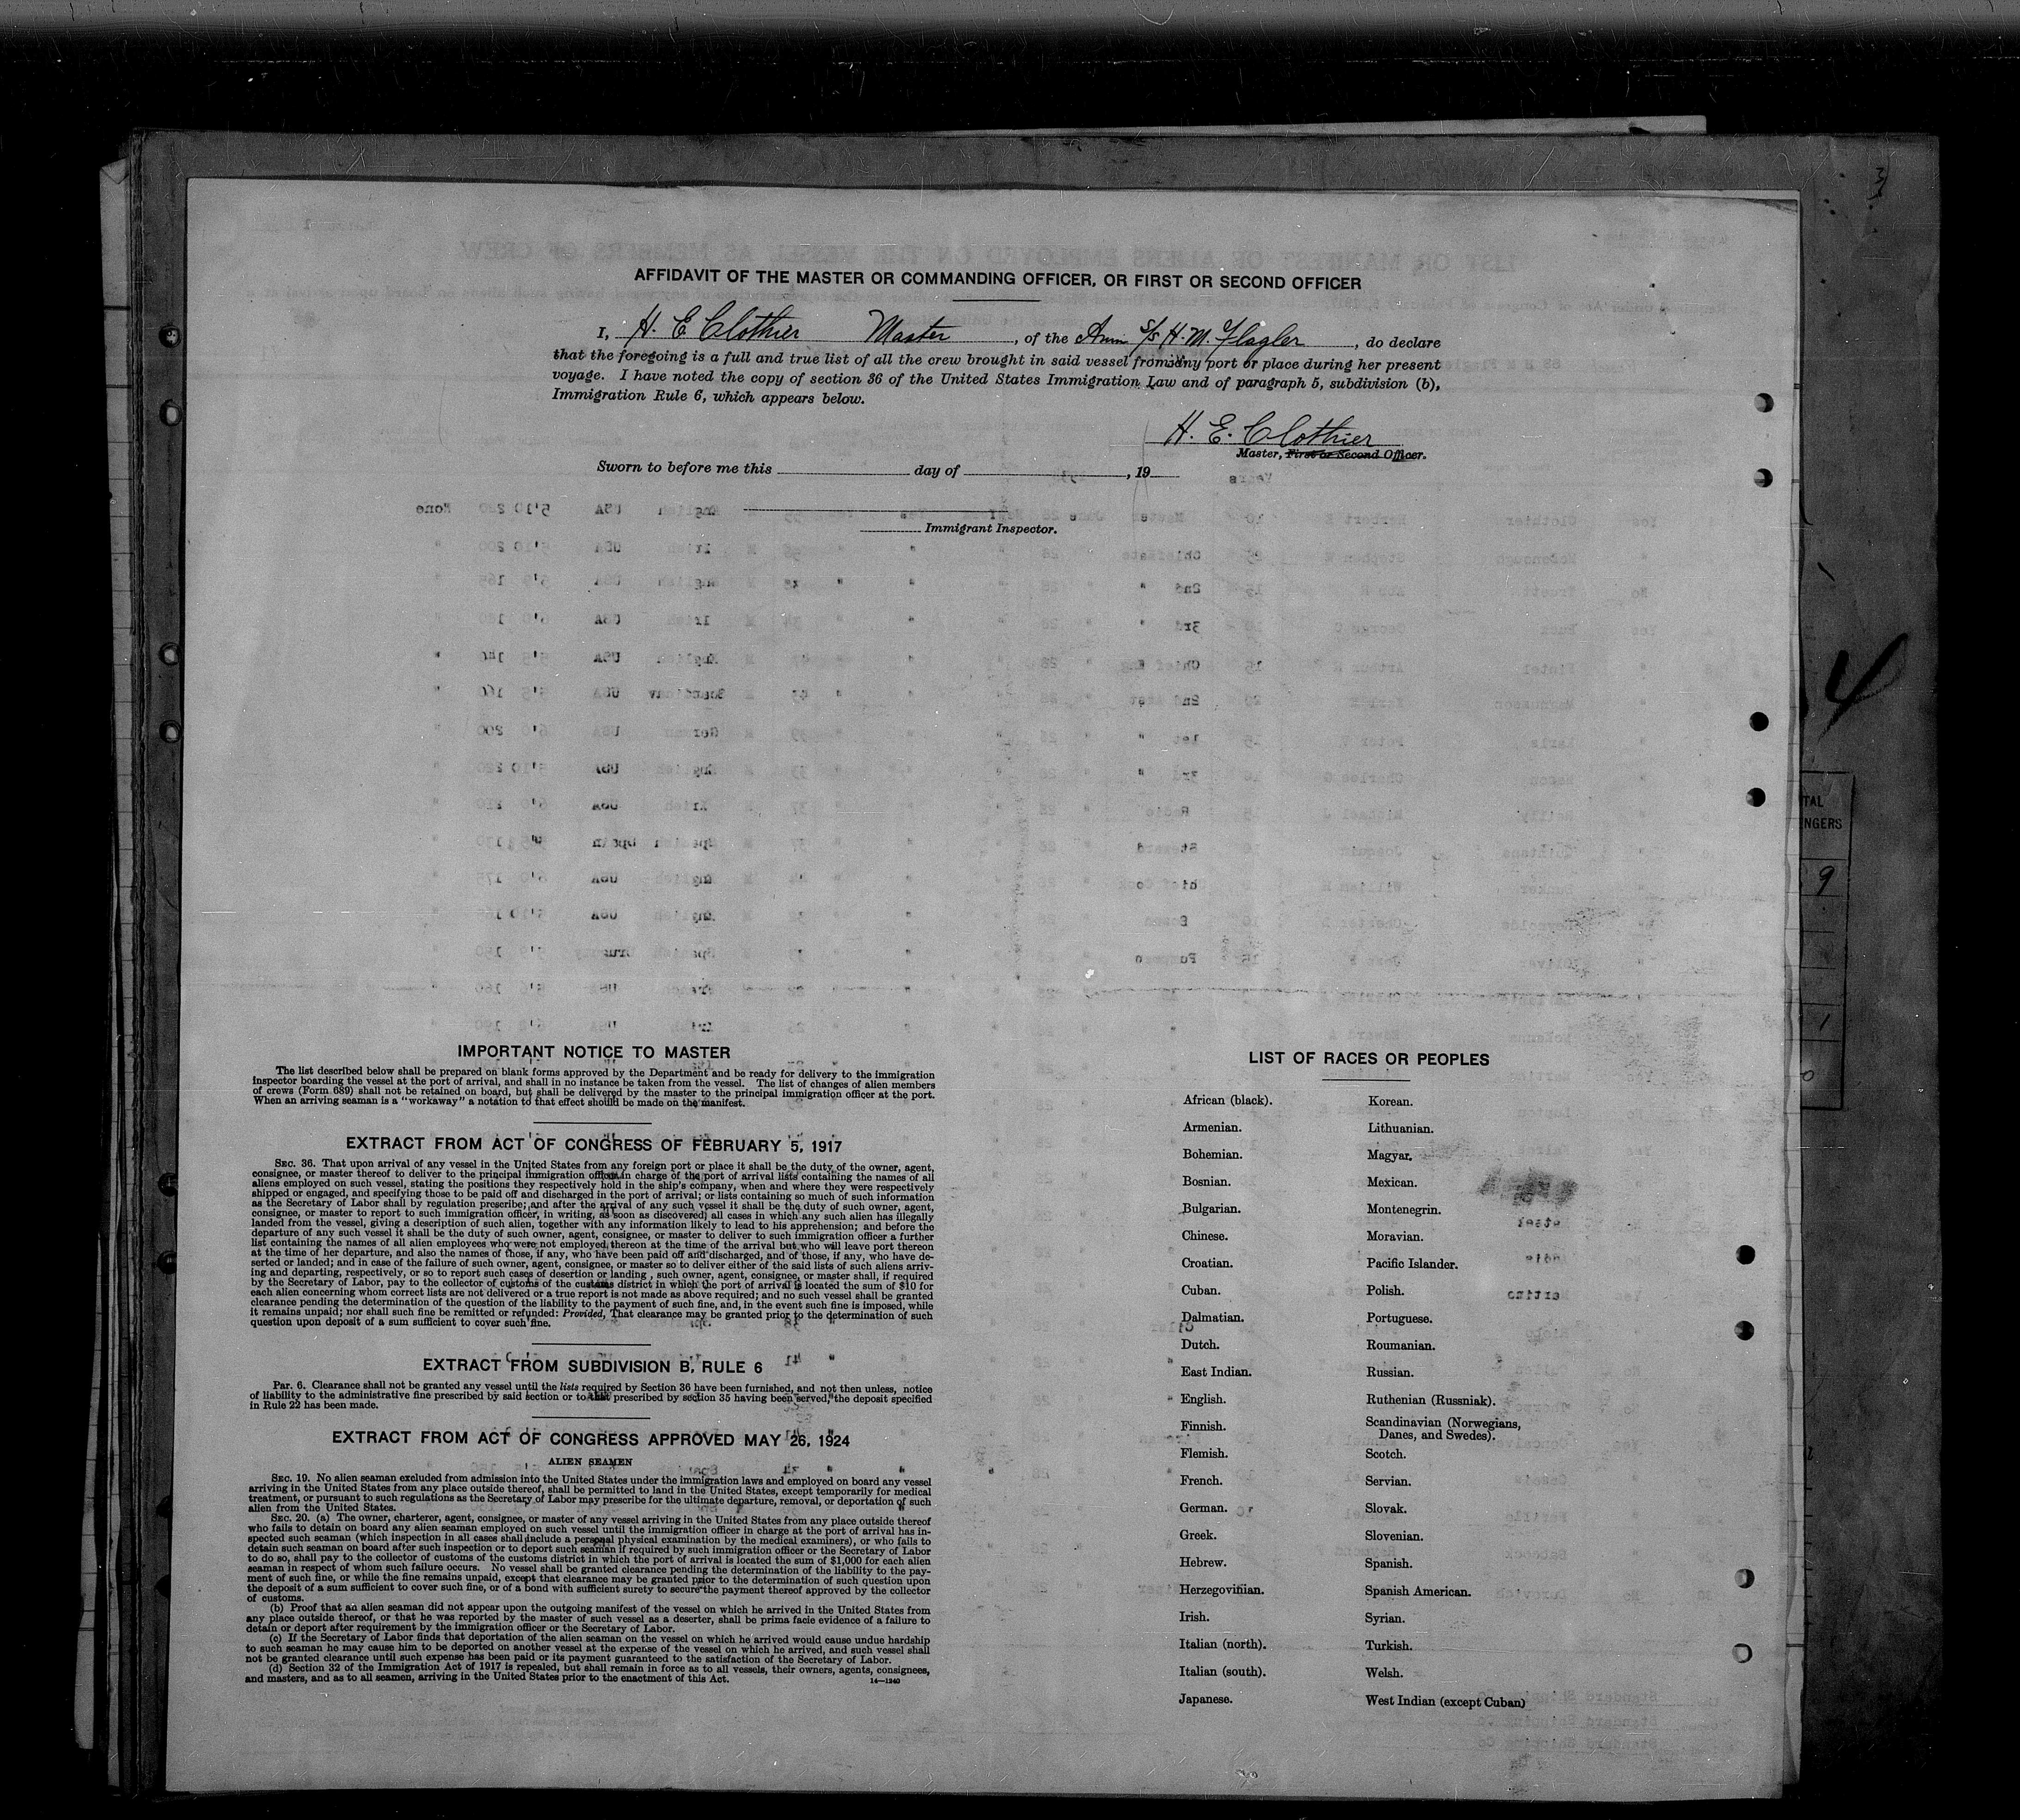 AFFIDAVIT OF THE MASTER OR COMMANDING OFFICER, OR FIRST OR SECOND OFFICER
I, H. E. Clothier Master, of the Am S/S H. M. Flagler, do declare
that the foregoing is a full and true list of all the crew brought in said vessel from any port or place during her present
voyage. I have noted the copy of section 36 of the United States Immigration Law and of paragraph 5, subdivision (b),
Immigration Rule 6, which appears below.
H. E. Clothier
Master, First or Second Officer.
Sworn to before me this day of , 19
Immigrant Inspector.
IMPORTANT NOTICE TO MASTER
The list described below shall be prepared on blank forms approved by the Department and be ready for delivery to the immigration
inspector boarding the vessel at the port of arrival, and shall in no instance be taken from the vessel. The list of changes of alien members
of crews (Form 689) shall not be retained on board, but shall be delivered by the master to the principal immigration officer at the port.
When an arriving seaman is a "workaway" a notation to that effect should be made on the manifest.
EXTRACT FROM ACT OF CONGRESS OF FEBRUARY 5, 1917
SEC. 36. That upon arrival of any vessel in the United States from any foreign port or place it shall be the duty of the owner, agent,
consignee, or master thereof to deliver to the principal immigration officer in charge of the port of arrival lists containing the names of all
aliens employed on such vessel, stating the positions they respectively hold in the ship's company, when and where they were respectively
shipped or engaged, and specifying those to be paid off and discharged in the port of arrival; or lists containing so much of such information
as the Secretary of Labor shall by regulation prescribe; and after the arrival of any such vessel it shall be the duty of such owner, agent,
consignee, or master to report to such immigration officer, in writing, as soon as discovered, all cases in which any such alien has illegally
landed from the vessel, giving a description of such alien, together with any information likely to lead to his apprehension; and before the
departure of any such vessel it shall be the duty of such owner, agent, consignee, or master to deliver to such immigration officer a further
list containing the names of all alien employees who were not employed thereon at the time of the arrival but who will leave port thereon
at the time of her departure, and also the names of those, if any, who have been paid off and discharged, and of those, if any, who have de-
serted or landed; and in case of the failure of such owner, agent, consignee, or master so to deliver either of the said lists of such aliens arriv-
ing and departing, respectively, or so to report such cases of desertion or landing, such owner, agent, consignee, or master shall, if required
by the Secretary of Labor, pay to the collector of customs of the customs district in which the port of arrival is located the sum of $10 for
each alien concerning whom correct lists are not delivered or a true report is not made as above required; and no such vessel shall be granted
clearance pending the determination of the question of the liability to the payment of such fine, and, in the event such fine is imposed, while
it remains unpaid; nor shall such fine be remitted or refunded: Provided, That clearance may be granted prior to the determination of such
question upon deposit of a sum sufficient to cover such fine.
EXTRACT FROM SUBDIVISION B, RULE 6
Par. 6. Clearance shall not be granted any vessel until the lists required by Section 36 have been furnished, and not then unless, notice
of liability to the administrative fine prescribed by said section or to that prescribed by section 35 having been served, the deposit specified
in Rule 22 has been made.
EXTRACT FROM ACT OF CONGRESS APPROVED MAY 26, 1924
ALIEN SEAMEN
SEC. 19. No alien seaman excluded from admission into the United States under the immigration laws and employed on board any vessel
arriving in the United States from any place outside thereof, shall be permitted to land in the United States, except temporarily for medical
treatment, or pursuant to such regulations as the Secretary of Labor may prescribe for the ultimate departure, removal, or deportation of such
alien from the United States.
SEC. 20. (a) The owner, charterer, agent, consignee, or master of any vessel arriving in the United States from any place outside thereof
who fails to detain on board any alien seaman employed on such vessel until the immigration officer in charge at the port of arrival has in-
spected such seaman (which inspection in all cases shall include a personal physical examination by the medical examiners), or who fails to
detain such seaman on board after such inspection or to deport such seaman if required by such immigration officer or the Secretary of Labor
to do so, shall pay to the collector of customs of the customs district in which the port of arrival is located the sum of $1,000 for each alien
seaman in respect of whom such failure occurs. No vessel shall be granted clearance pending the determination of the liability to the pay-
ment of such fine, or while the fine remains unpaid, except that clearance may be granted prior to the determination of such question upon
the deposit of a sum sufficient to cover such fine, or of a bond with sufficient surety to secure the payment thereof approved by the collector
of customs.
(b) Proof that an alien seaman did not appear upon the outgoing manifest of the vessel on which he arrived in the United States from
any place outside thereof, or that he was reported by the master of such vessel as a deserter, shall be prima facie evidence of a failure to
detain or deport after requirement by the immigration officer or the Secretary of Labor.
(c) If the Secretary of Labor finds that deportation of the alien seaman on the vessel on which he arrived would cause undue hardship
to such seaman he may cause him to be deported on another vessel at the expense of the vessel on which he arrived, and such vessel shall
not be granted clearance until such expense has been paid or its payment guaranteed to the satisfaction of the Secretary of Labor.
(d) Section 32 of the Immigration Act of 1917 is repealed, but shall remain in force as to all vessels, their owners, agents, consignees,
and masters, and as to all seamen, arriving in the United States prior to the enactment of this Act.
14—1240
LIST OF RACES OR PEOPLES
African (black).
Armenian.
Bohemian.
Bosnian.
Bulgarian.
Chinese.
Croatian.
Cuban.
Dalmatian.
Dutch.
East Indian.
English.
Finnish.
Flemish.
French.
German.
Greek.
Hebrew.
Herzegovinian.
Irish.
Italian (north).
Italian (south).
Japanese.
Korean.
Lithuanian.
Magyar.
Mexican.
Montenegrin.
Moravian.
Pacific Islander.
Polish.
Portuguese.
Roumanian.
Russian.
Ruthenian (Russniak).
Scandinavian (Norwegians,
Danes, and Swedes).
Scotch.
Servian.
Slovak.
Slovenian.
Spanish.
Spanish American.
Syrian.
Turkish.
Welsh.
West Indian (except Cuban)
4
TAL
ENGERS
9
1
0